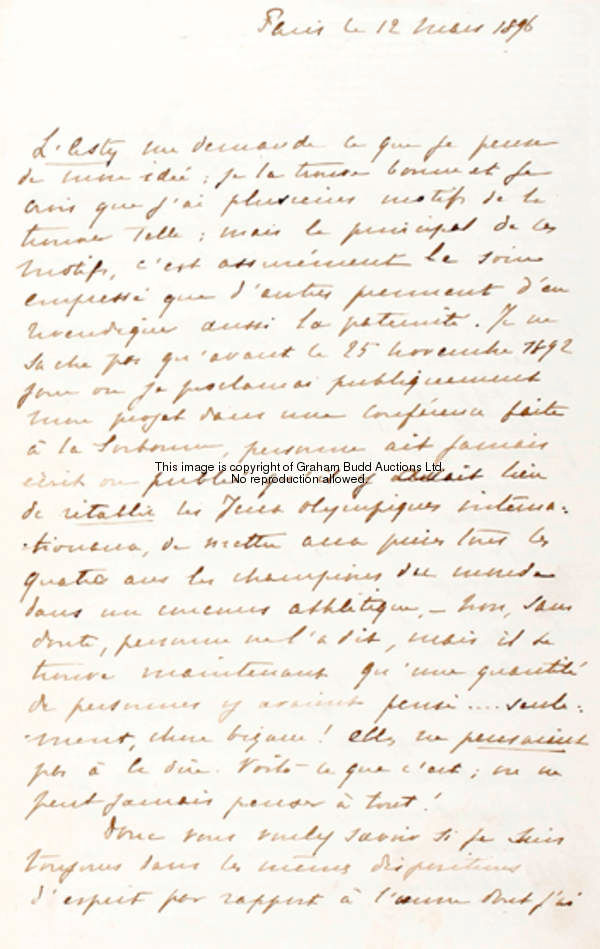 Paris le 12 Mars 1896
L'Esty me demande ce que je pense
de mon idée ; je la trouve bonne et je
crois que j'ai plusieurs motifs de la
trouver telle ; mais le principal de ces
motifs, c'est assurément le soin
empressé que d'autres prennent d'en
revendiquer aussi la paternité. Je ne
sache pas qu'avant le 25 novembre 1892
jour où je proclamai publiquement
mon projet dans une conférence faite
à la Sorbonne, personne ait jamais
This image is copyright of Graham Budd Auctions Ltd.
No reproduction allowed.
écrit ou publié qu'il y lieu
de rétablir les Jeux olympiques interna-
-tionaux, de mettre aux prises tous les
quatre ans les champions du monde
dans un concours athlétique, – Non, sans
doute, personne ne l'a dit, mais il se
trouve maintenant qu'une quantité
de personnes y avaient pensé .... seule-
-ment, chose bizarre ! elles ne pensaient
pas à le dire. Voilà ce que c'est ; on ne
peut jamais penser à tout !
Donc vous voulez savoir si je suis
toujours dans les mêmes dispositions
d'esprit par rapport à l'œuvre dont j'ai